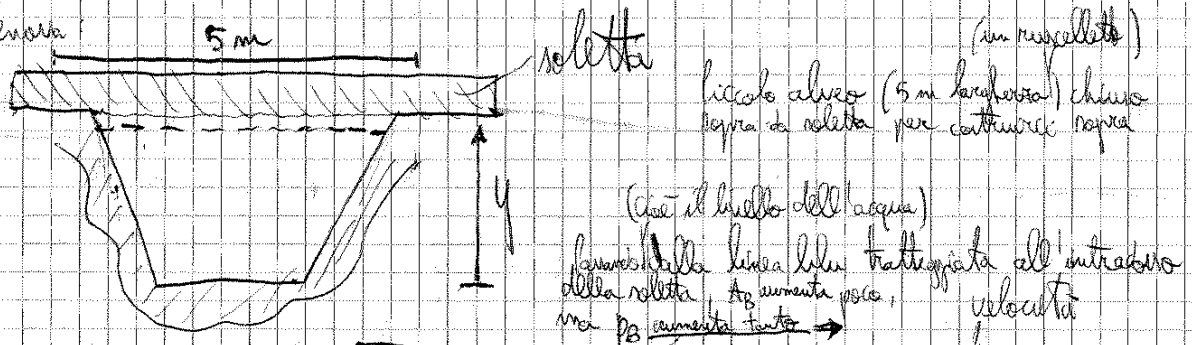 enova
5 m
soletta
(un ruscelletto)
Piccolo alveo (5 m larghezza) chiuso
sopra da soletta per costruirci sopra
y
(cioè il livello dell'acqua)
dalla linea blu tratteggiata all'intradosso
della soletta, AB aumenta poco, velocità
ma PB aumenta tanto →